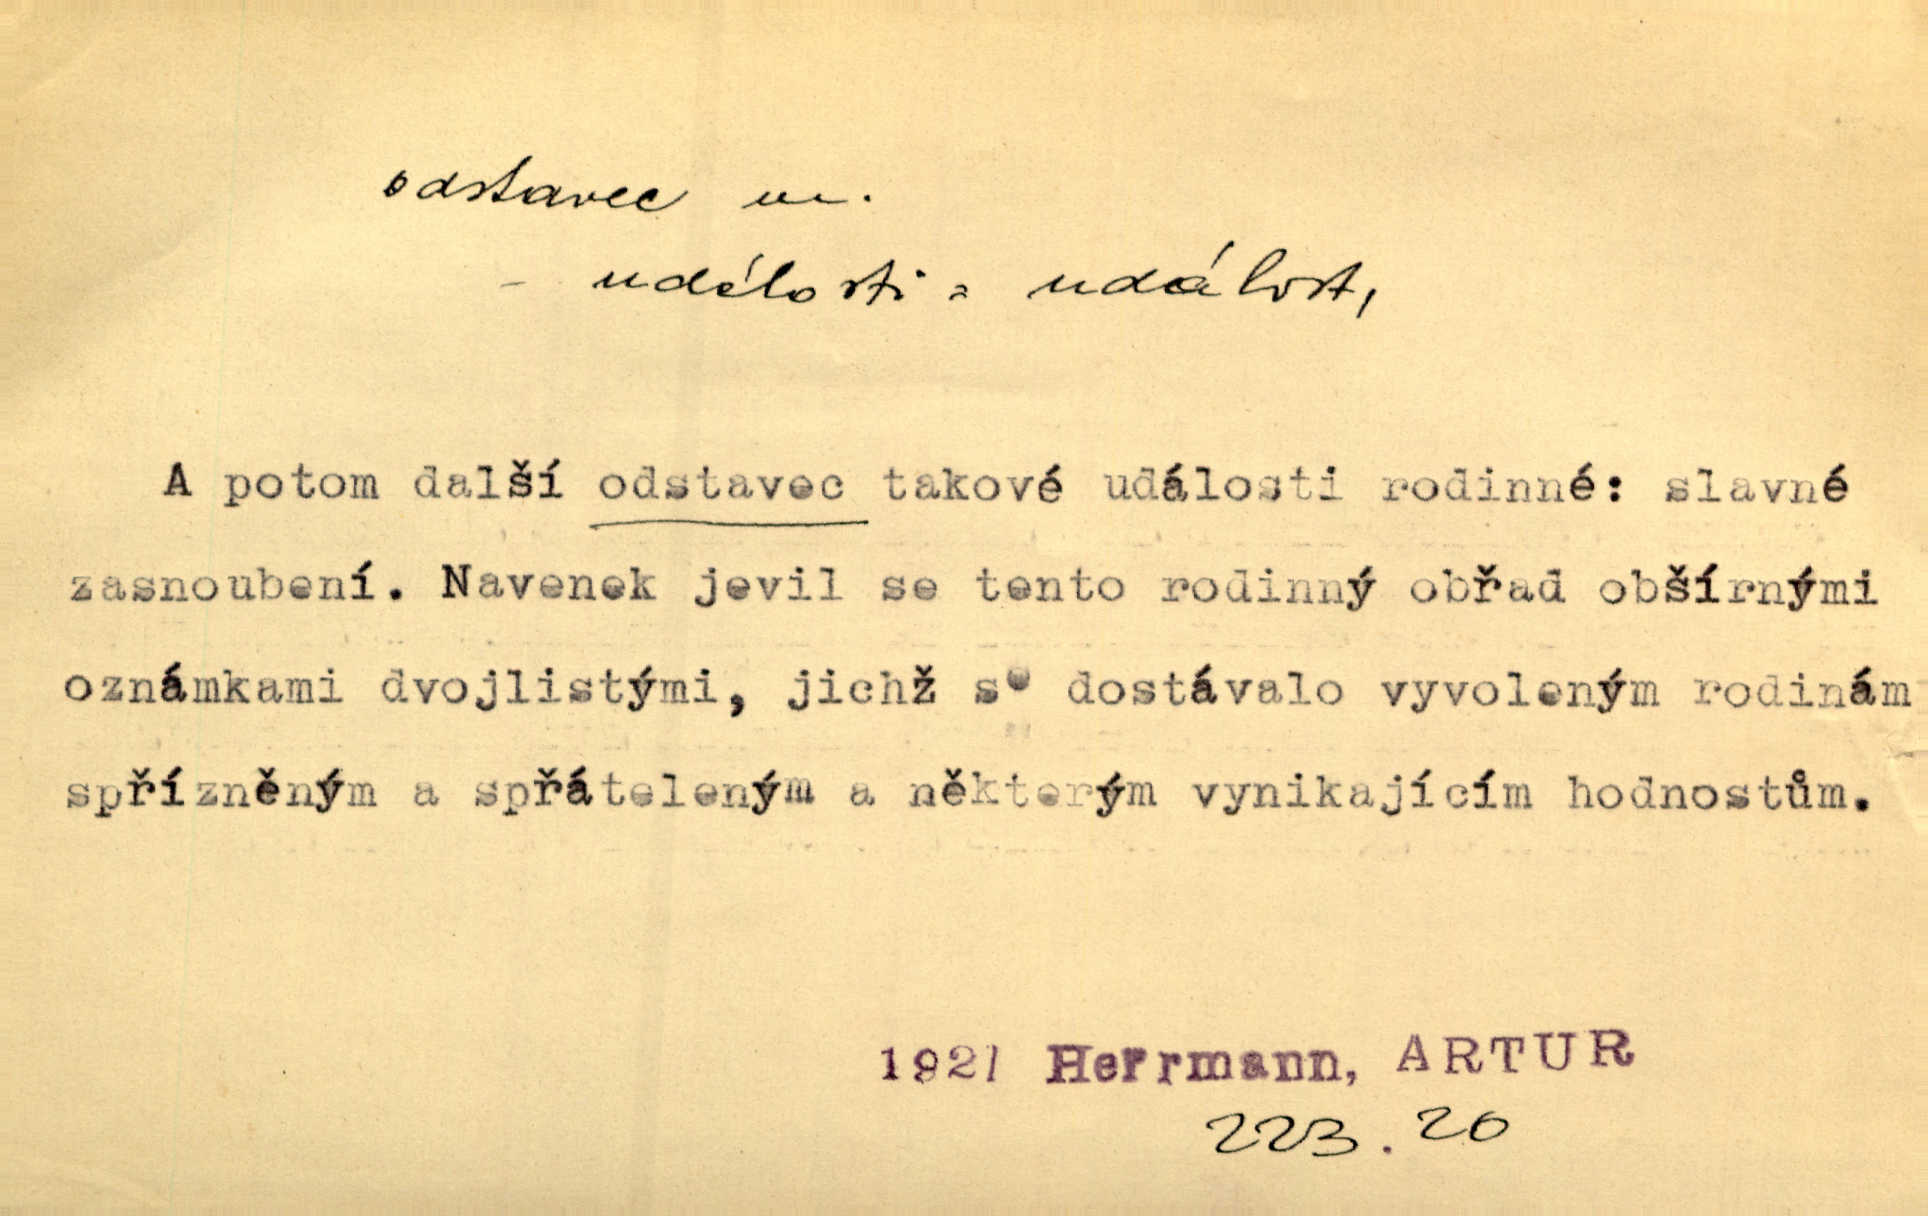 odstavec m.
- události = událost,
A potom další odstavec takové události rodinné: slavné
zasnoubení. Navenek jevil se tento rodinný obřad obšírnými
oznámkami dvojlistými, jichž se dostávalo vyvoleným rodinám
spřízněným a spřáteleným a některým vynikajícím hodnostům.
1921 Herrmann, ARTUR
223.20